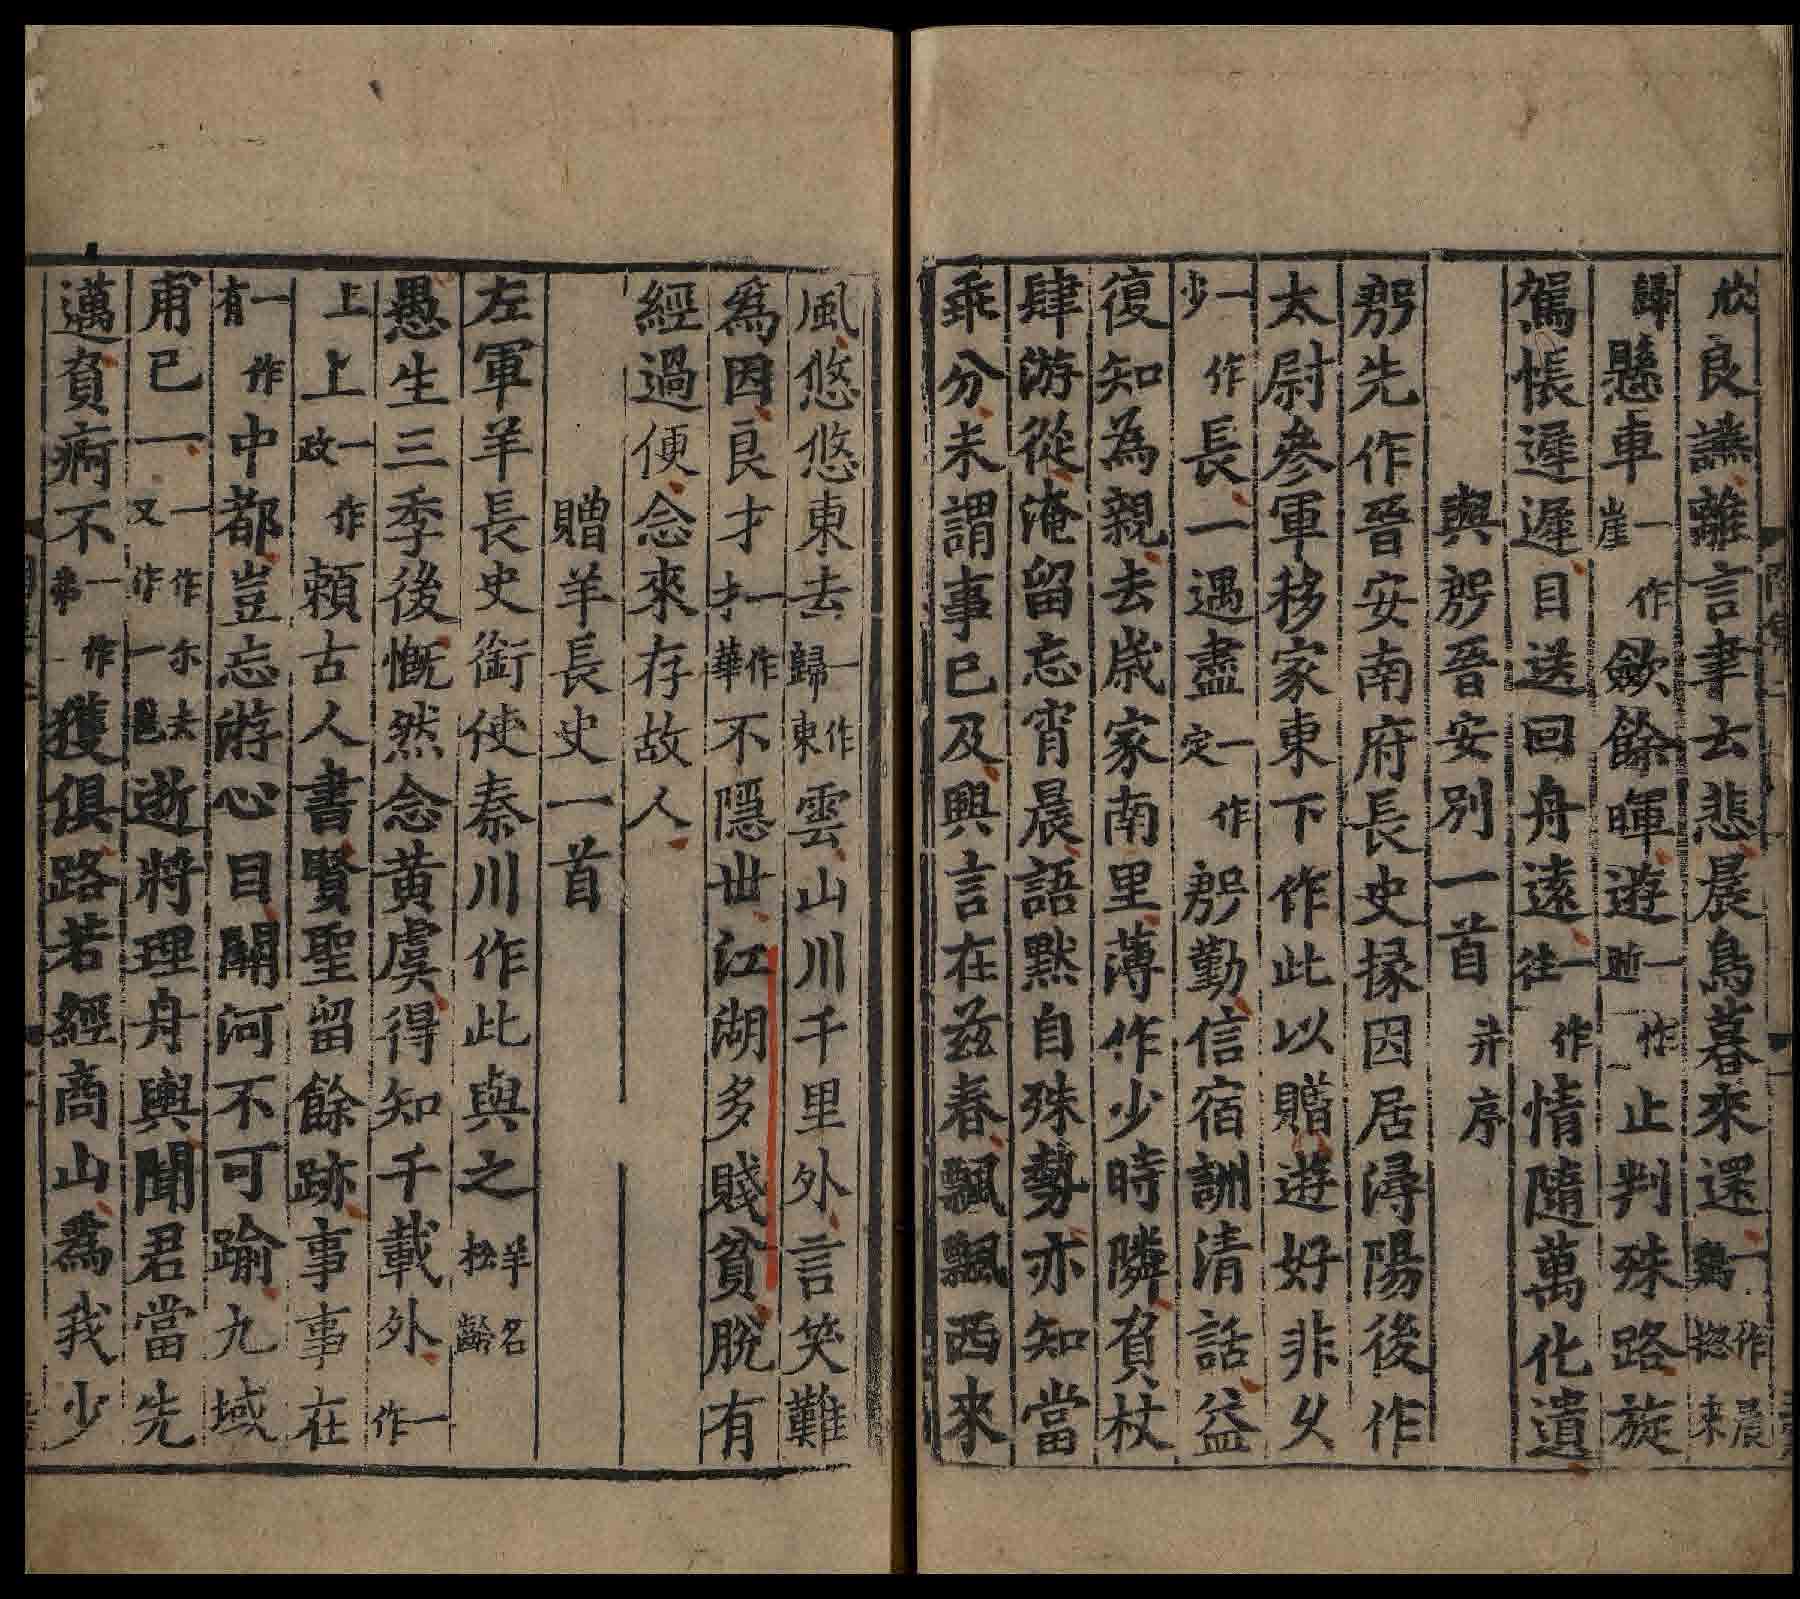 欣良讌離言聿云悲晨鳥暮來還一作晨來
歸懸車一作崖斂餘暉遊一作逝止判殊路旋
駕悵遲遲目送回舟遠一作往情隨萬化遺
與殷晉安別一首并序
殷先作晉安南府長史掾因居潯陽後作
太尉參軍移家東下作此以贈遊好非久
一作少長一遇盡一作定殷勤信宿詶清話益
復知為親去歲家南里薄作少時隣負杖
肆游從淹留忘宵晨語默自殊勢亦知當
乖分未謂事已及興言在茲春飄飄西來
風悠悠東去一作歸東雲山川千里外言笑難
為因良才一作才華不隱世江湖多賤貧脫有
經過便念來存故人
贈羊長史一首
左軍羊長史銜使秦川作此與之羊名松齡
愚生三季後慨然念黃虞得知千載外一作
上上一作政賴古人書賢聖留餘跡事事在
一作有中都豈忘游心目關河不可踰九域
甫已一一作尔去又作一邑逝將理舟輿聞君當先
邁負痾不一作弗獲俱路若經商山為我少